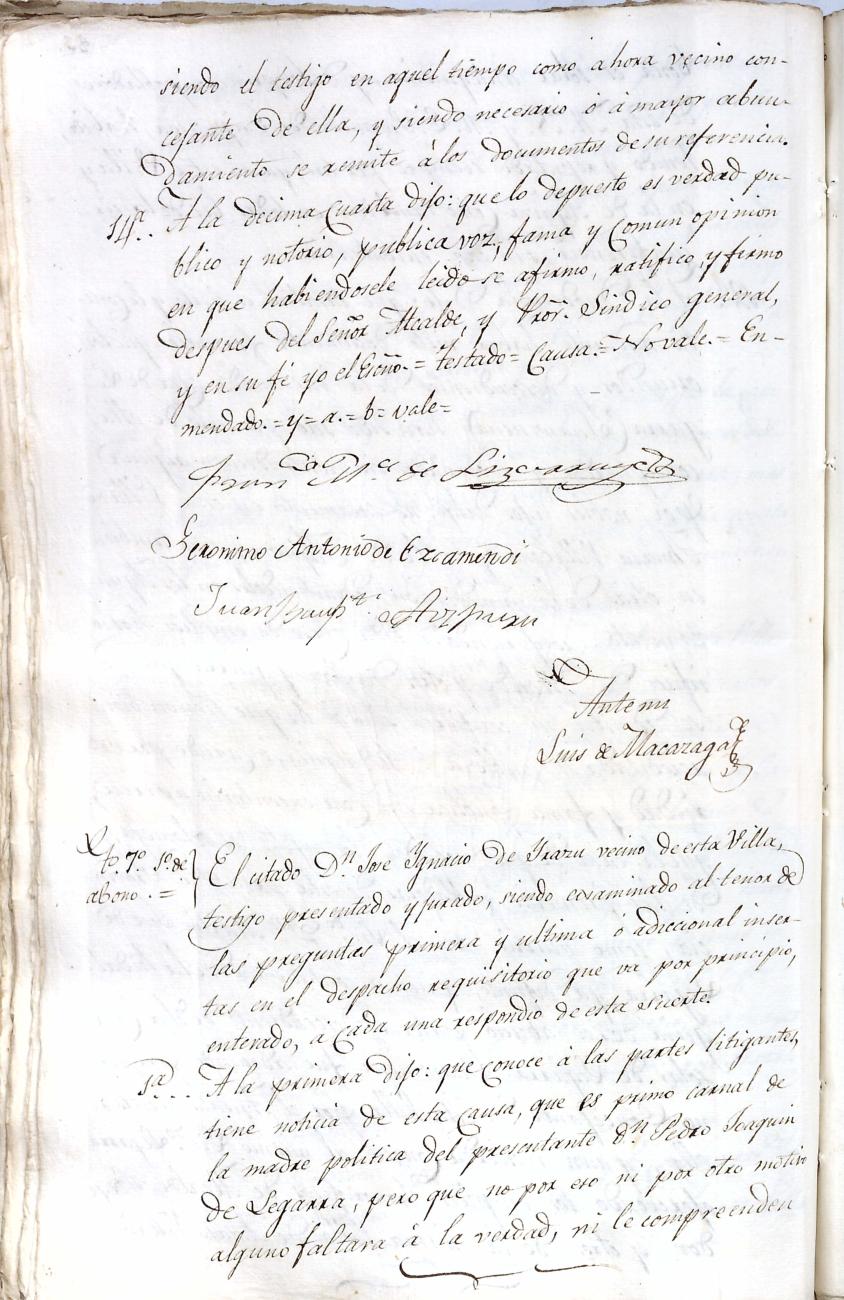 siendo el testigo en aquel tiempo como ahora vecino con-
cejante de ella, y siendo necesario ó á mayor abun-
damiento se remite á los documentos de su referencia.
14ª.. A la decima cuarta dijo: que lo depuesto es verdad pu-
blico y notorio, publica voz, fama y comun opinion
en que habiendosele leido se afirmo, ratifico, y firmo
despues del Señor Alcalde, y Pror. Sindico general,
y en su fé yo el Esñno. = Testado = Causa. = No vale. = En-
mendado. = y = a. = b = vale =
Franco Ma de Lizarraga
Geronimo Antonio de Ezcamendi
Juan Baupta Aizpuru
Ante mi
Luis de Macazaga
to. 7º 1º de
abono. =
El citado Dn Jose Ignacio de Yrazu vecino de esta Villa,
testigo presentado y jurado, siendo examinado al tenor de
las preguntas primera y ultima ó adiccional inser-
tas en el despacho requisitorio que va por principio,
enterado, á cada una respondio de esta suerte.
1ª... A la primera dijo: que conoce á las partes litigantes,
tiene noticia de esta causa, que es primo carnal de
la madre politica del presentante dn Pedro Joaquin
de Legarra, pero que no por eso ni por otro motivo
alguno faltara á la verdad, ni le comprenden